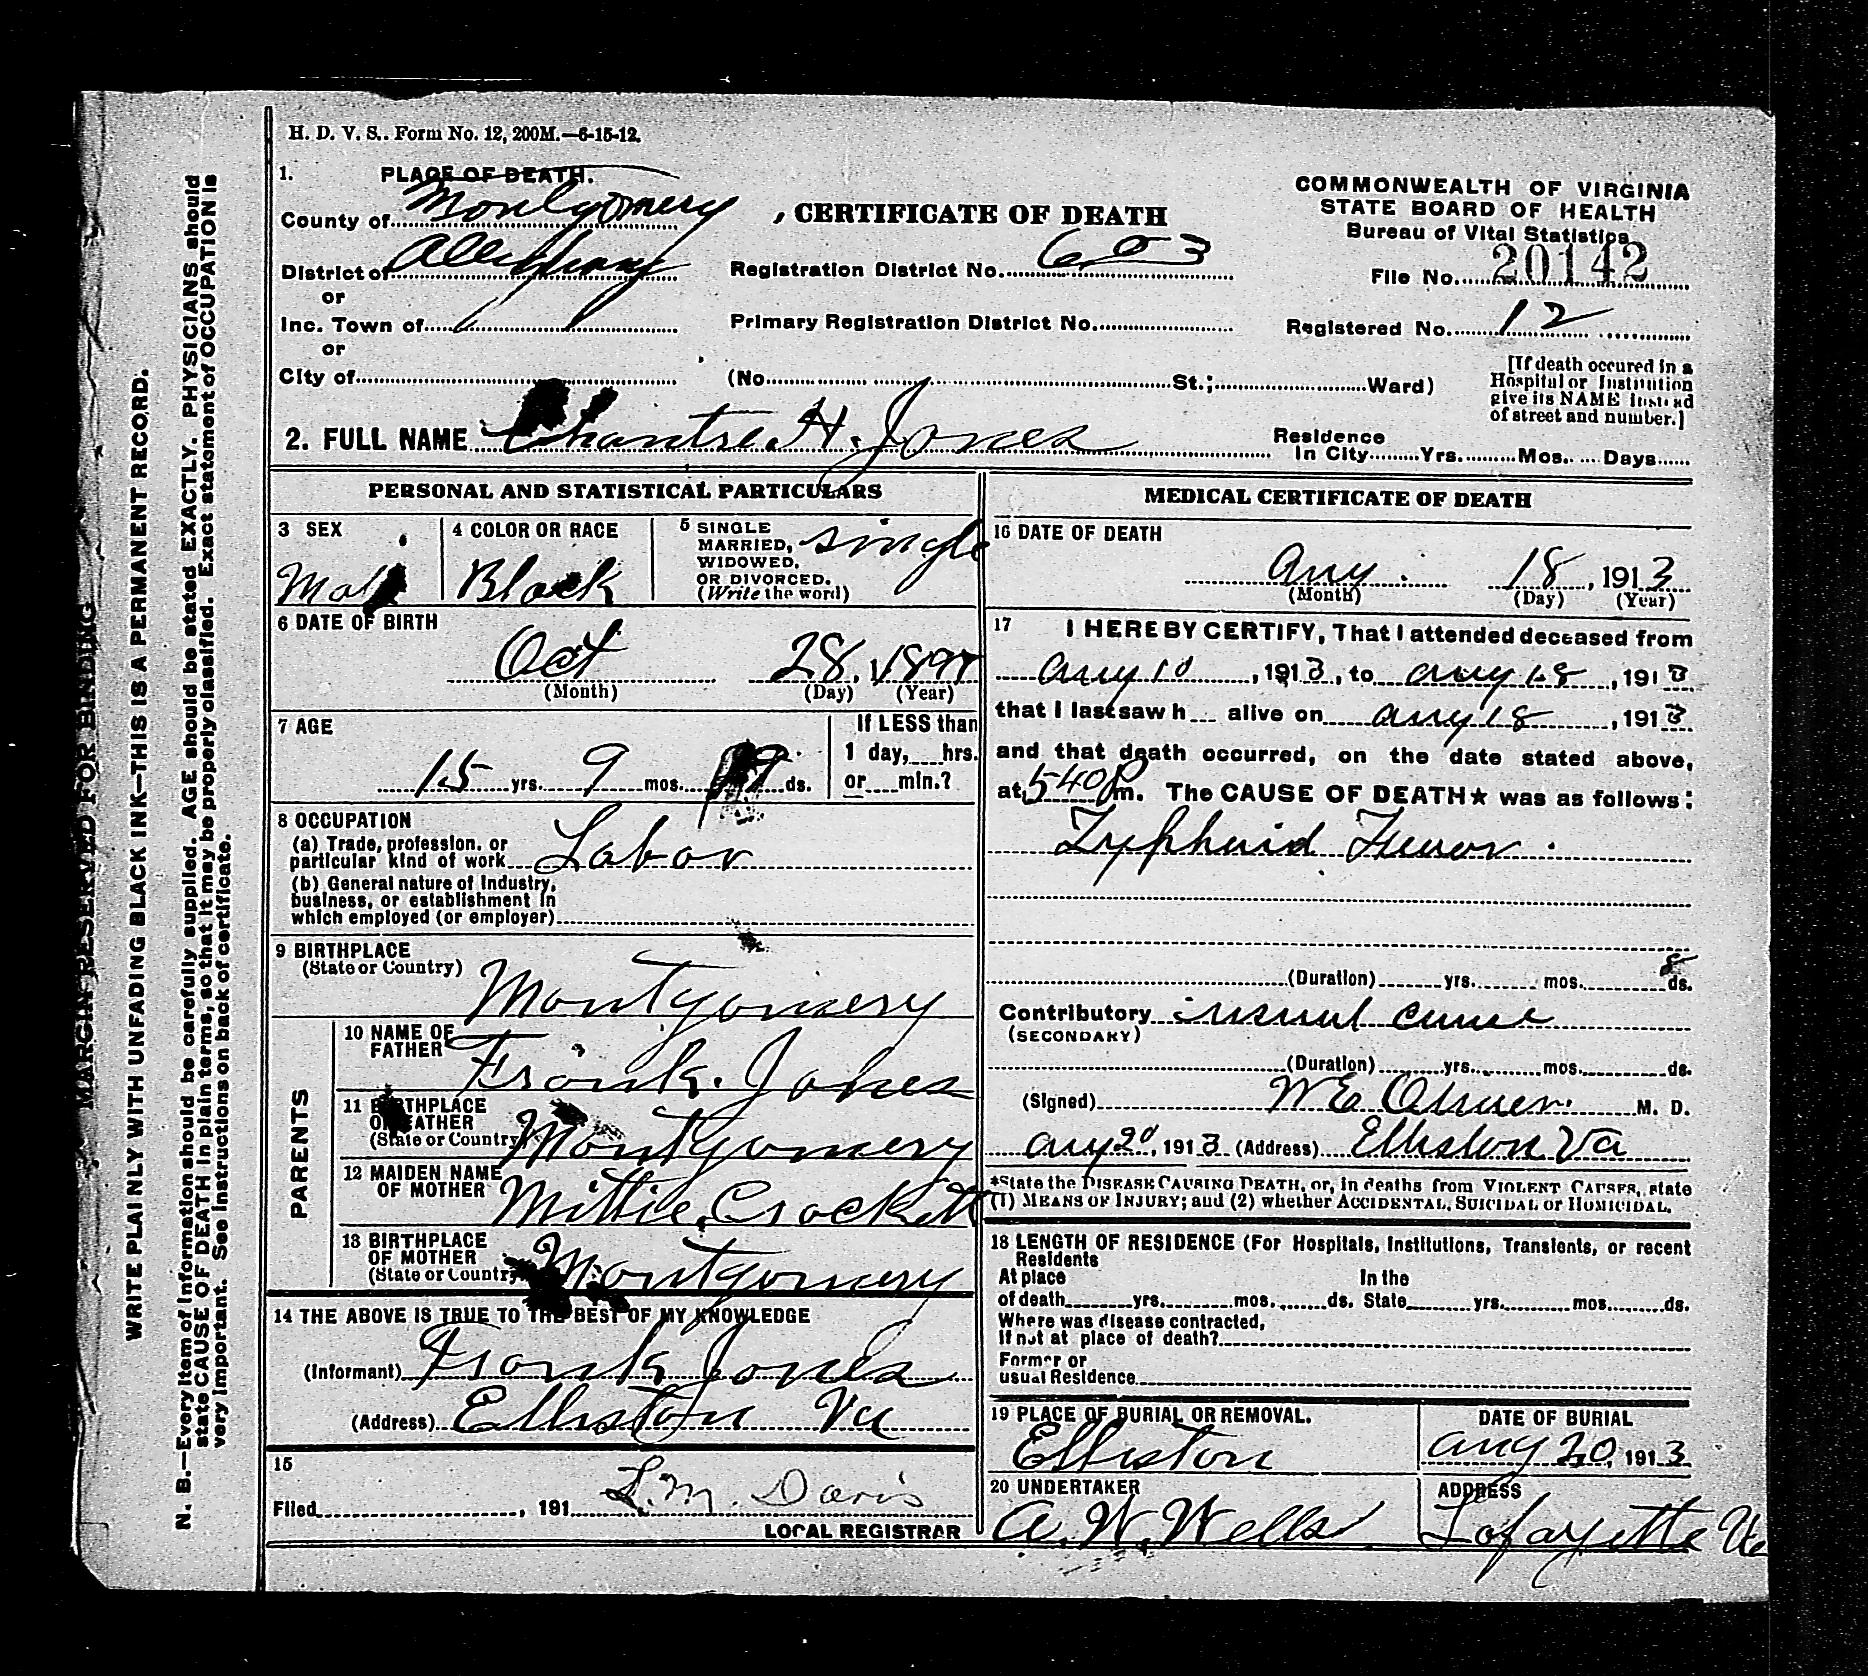 H. D. V. S.. Form No. 12, 200M.—6-15-12.
1. PLACE OF DEATH.
County of Montgomery
District of Alleghany
or
Inc. Town of
or
City of
, CERTIFICATE OF DEATH
Registration District No. 603
Primary Registration District No.
(No. St.; Ward)
COMMONWEALTH OF VIRGINIA
STATE BOARD OF HEALTH
Bureau of Vital Statistics
File No. 20142
Registered No. 12
[If death occured in a
Hospital or Institution
give its NAME instead
of street and number.]
2. FULL NAME H. Jones
Residence
In City Yrs. Mos. Days
PERSONAL AND STATISTICAL PARTICULARS
3 SEX
Male
4 COLOR OR RACE
Black
5 SINGLE
MARRIED,
WIDOWED,
OR DIVORCED.
(Write the word)
single
6 DATE OF BIRTH
Oct 28, 1897
(Month) (Day) (Year)
7 AGE
15 yrs. 9 mos. ds.
If LESS than
1 day, hrs.
or min.?
8 OCCUPATION
(a) Trade, profession, or
particular kind of work Labor
(b) General nature of Industry,
business, or establishment in
which employed (or employer)
9 BIRTHPLACE
(State or Country)
Montgomery
PARENTS
10 NAME OF
FATHER
Frank. Jones
11 BIRTHPLACE
OF FATHER
(State or Country)
Montgomery
12 MAIDEN NAME
OF MOTHER
Mittie Crockett
13 BIRTHPLACE
OF MOTHER
(State or Country)
Montgomery
14 THE ABOVE IS TRUE TO THE BEST OF MY KNOWLEDGE
(Informant) Frank Jones
(Address) Elliston Va
15
Filed , 191 L. M. Davis
LOCAL REGISTRAR
MEDICAL CERTIFICATE OF DEATH
16 DATE OF DEATH
Aug. 18, 1913
(Month) (Day) (Year)
17 I HEREBY CERTIFY, That I attended deceased from
Aug 10, 1913, to Aug 18, 1913
that I last saw h alive on Aug 18, 1913
and that death occurred, on the date stated above,
at 540 P m. The CAUSE OF DEATH★ was as follows:
Typhoid Fever.
(Duration) yrs. mos. 8 ds.
Contributory usual cause
(SECONDARY)
(Duration) yrs. mos. ds.
(Signed) W E M. D.
Aug 20, 1913 (Address) Elliston Va
*State the DISEASE CAUSING DEATH, or, in deaths from VIOLENT CAUSES, state
(1) MEANS OF INJURY; and (2) whether ACCIDENTAL, SUICIDAL or HOMICIDAL.
18 LENGTH OF RESIDENCE (For Hospitals, Institutions, Transients, or recent
Residents
At place In the
of death yrs. mos. ds. State yrs. mos. ds.
Where was disease contracted,
If not at place of death?
Former or
usual Residence
19 PLACE OF BURIAL OR REMOVAL.
Elliston
DATE OF BURIAL
Aug 20, 1913
20 UNDERTAKER
A. W. Wells
ADDRESS
Lafayette Va
MARGIN RESERVED FOR BINDING
WRITE PLAINLY WITH UNFADING BLACK INK—THIS IS A PERMANENT RECORD.
N. B.—Every item of information should be carefully supplied. AGE should be stated EXACTLY. PHYSICIANS should
state CAUSE OF DEATH in plain terms, so that it may be properly classified. Exact statement of OCCUPATION is
very important. See instructions on back of certificate.